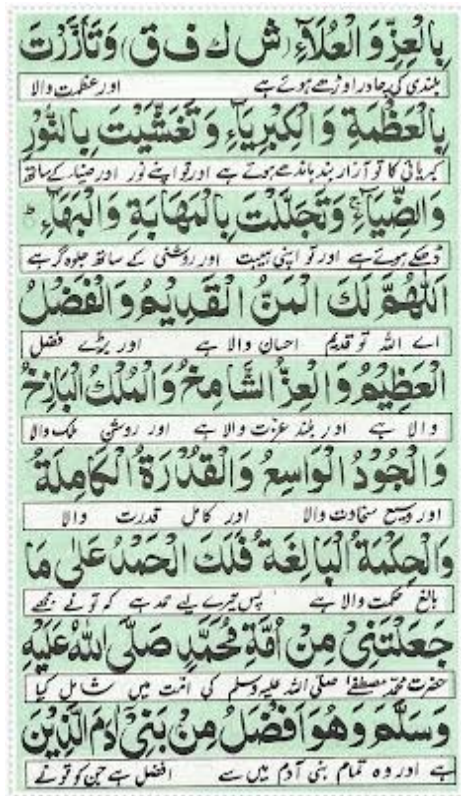 بِالْعِزِّ وَالْعُلَآءِ (ش ك ف ق) وَتَأَزَّرْتَ
بلندی کی چادر اوڑھے ہوئے ہے اور عظمت والا
بِالْعَظْمَةِ وَالْكِبْرِيَآءِ وَتَغَشَّيْتَ بِالنُّوْرِ
کبریائی کا تو آزار بند باندھے ہوئے ہے اور تو اپنے نور اور ضیاء کے ساتھ
وَالضِّيَآءِ وَتَجَلَّلْتَ بِالْمَهَابَةِ وَالْبَهَآءِ ط
ڈھکے ہوئے ہے اور تو اپنی ہیبت اور روشنی کے ساتھ جلوہ گر ہے
اَللّٰهُمَّ لَكَ الْمَنُّ الْقَدِيْمُ وَالْفَضْلُ
اے اللہ تو قدیم احسان والا ہے اور بڑے فضل
الْعَظِيْمُ وَالْعِزُّ الشَّامِخُ وَالْمُلْكُ الْبَاذِخُ
والا ہے اور بلند عزت والا ہے اور روشن ملک والا
وَالْجُوْدُ الْوَاسِعُ وَالْقُدْرَةُ الْكَامِلَةُ
اور وسیع سخاوت والا اور کامل قدرت والا
وَالْحِكْمَةُ الْبَالِغَةُ فَلَكَ الْحَمْدُ عَلٰى مَا
بالغ حکمت والا ہے پس تیرے لیے حمد ہے کہ تو نے مجھے
جَعَلْتَنِيْ مِنْ اُمَّةِ مُحَمَّدٍ صَلَّى اللّٰهُ عَلَيْهِ
حضرت محمد مصطفےٰ صلی اللہ علیہ وسلم کی امت میں شامل کیا
وَسَلَّمَ وَهُوَ اَفْضَلُ مِنْ بَنِيْٓ اٰدَمَ الَّذِيْنَ
ہے اور وہ تمام بنی آدم میں سے افضل ہے جن کو تو نے